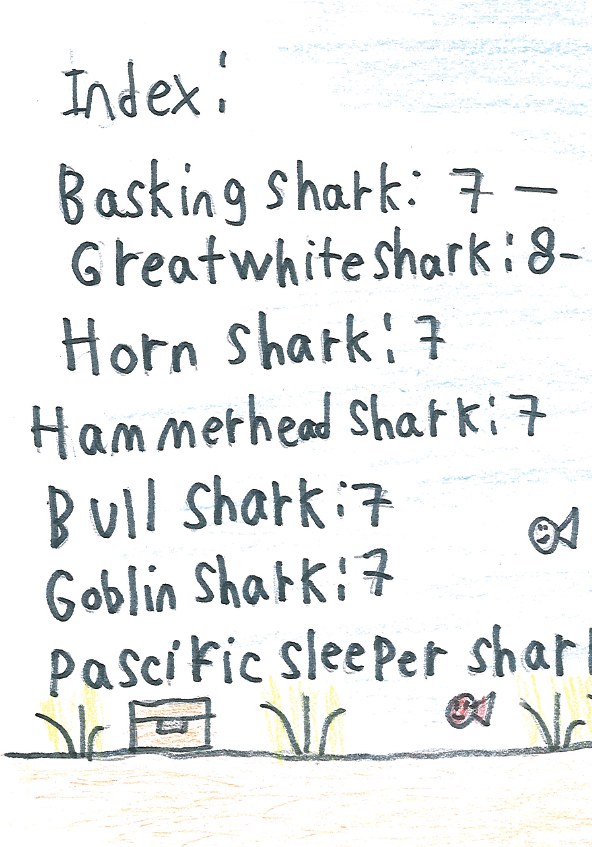 Index:
Basking shark: 7 —
Greatwhite shark: 8-
Horn shark: 7
Hammerhead shark: 7
Bull shark: 7
Goblin shark: 7
pascific sleeper shark